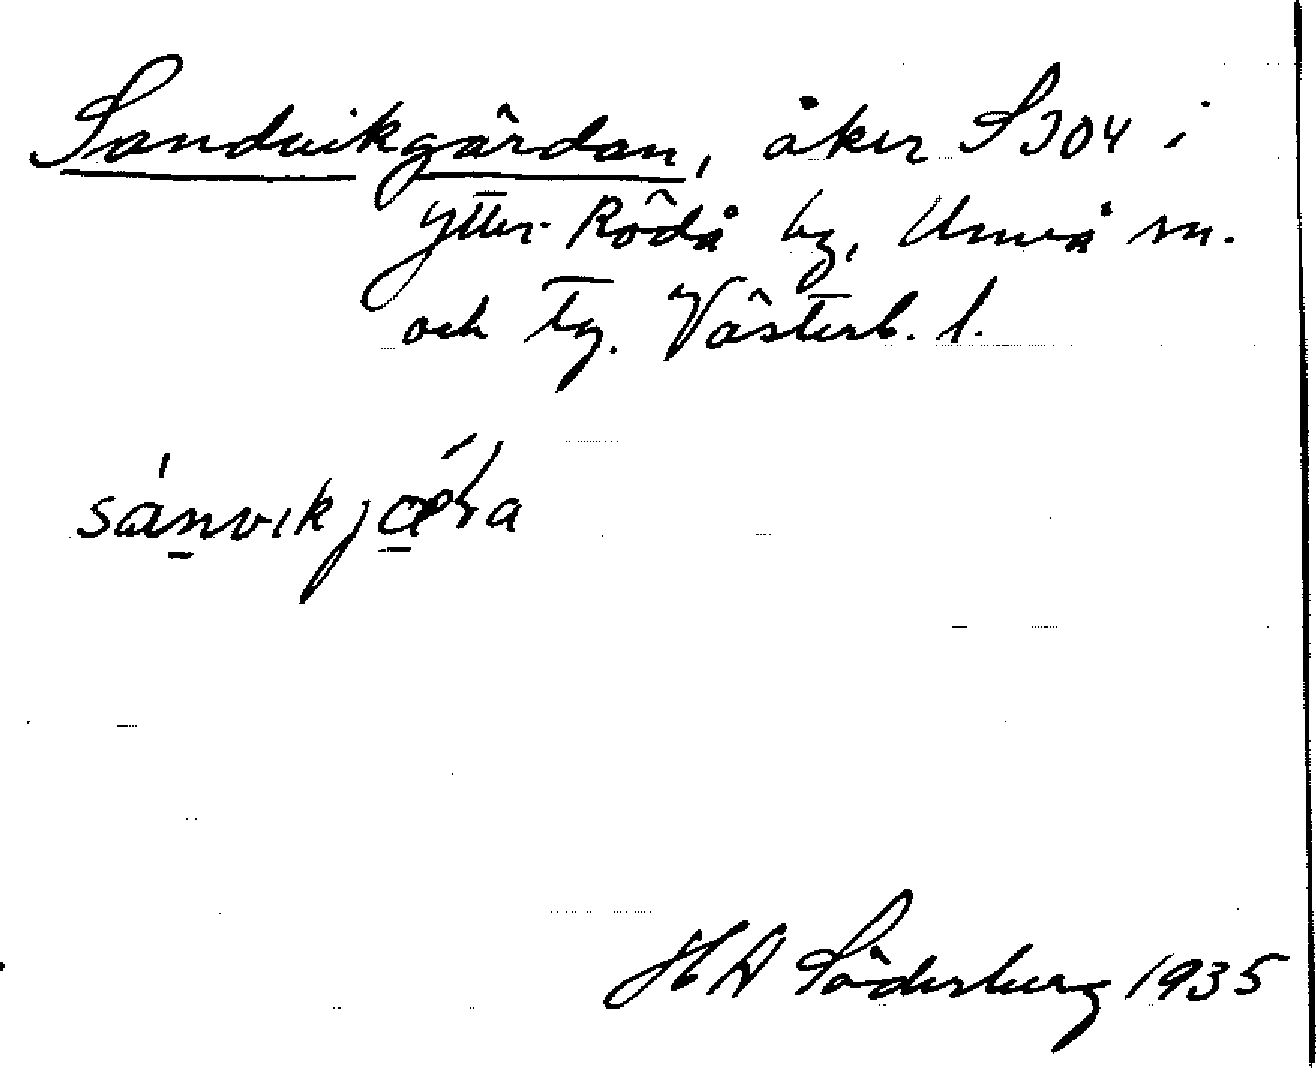 Sandvikgärdan, åker S304 i
Ytter-Rödå by, Umeå sn.
och tg. Västerb. l.
sánvikjæ̀ra
H A Söderberg 1935